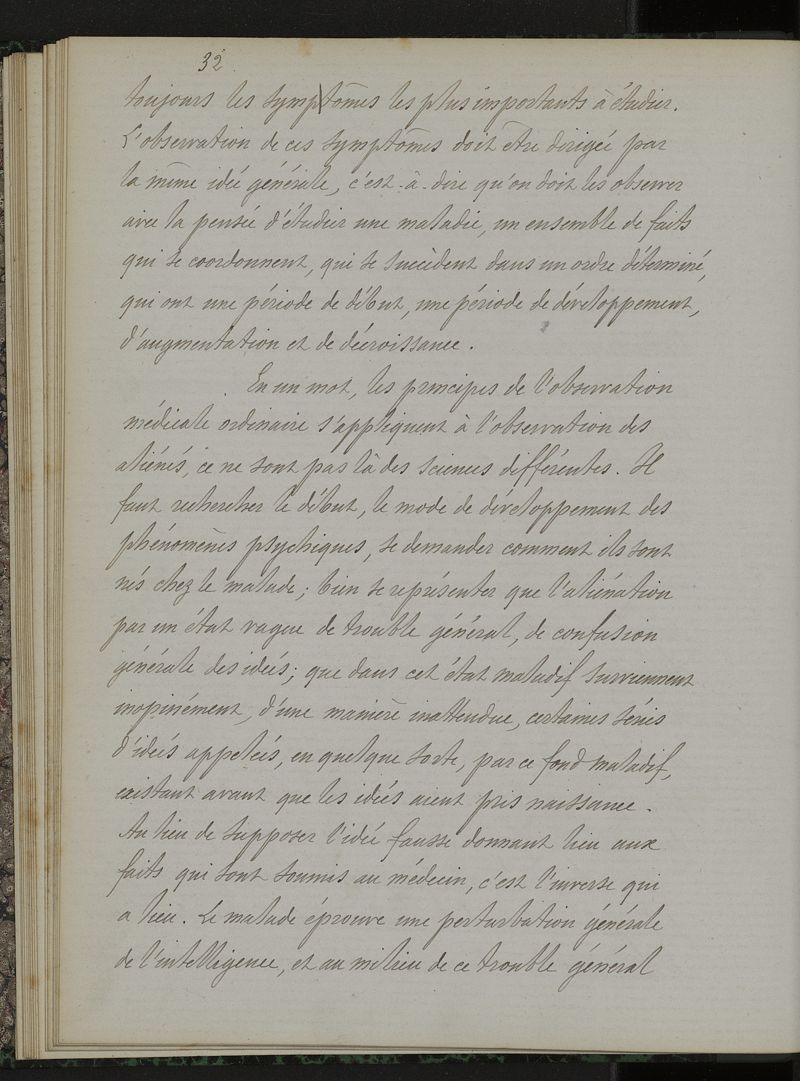 32
toujours les symptômes les plus importants à étudier.
L'observation de ces symptômes doit être dirigée par
la même idée générale, c'est-à-dire qu'on doit les observer
avec la pensée d'étudier une maladie, un ensemble de faits
qui se coordonnent, qui se succèdent dans un ordre déterminé,
qui ont une période de début, une période de développement,
d'augmentation et de décroissance.
En un mot, les principes de l'observation
médicale ordinaire s'appliquent à l'observation des
aliénés, ce ne sont pas là des sciences différentes. Il
faut rechercher le début, le mode de développement des
phénomènes psychiques, se demander comment ils sont
nés chez le malade ; bien se représenter que l'aliénation
par un état vague de trouble général, de confusion
générale des idées ; que dans cet état maladif surviennent
inopinément, d'une manière inattendue, certaines séries
d'idées appelées, en quelque sorte, par ce fond maladif,
existant avant que les idées aient pris naissance.
Au lieu de supposer l'idée fausse donnant lieu aux
faits qui sont soumis au médecin, c'est l'inverse qui
a lieu. Le malade éprouve une perturbation générale
de l'intelligence, et au milieu de ce trouble général